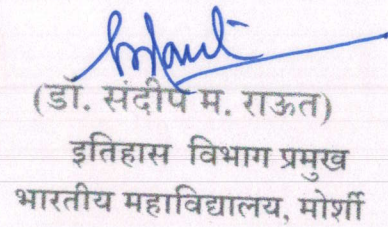 (डॉ. संदीप म. राऊत)
इतिहास विभाग प्रमुख
भारतीय महाविद्यालय, मोर्शी